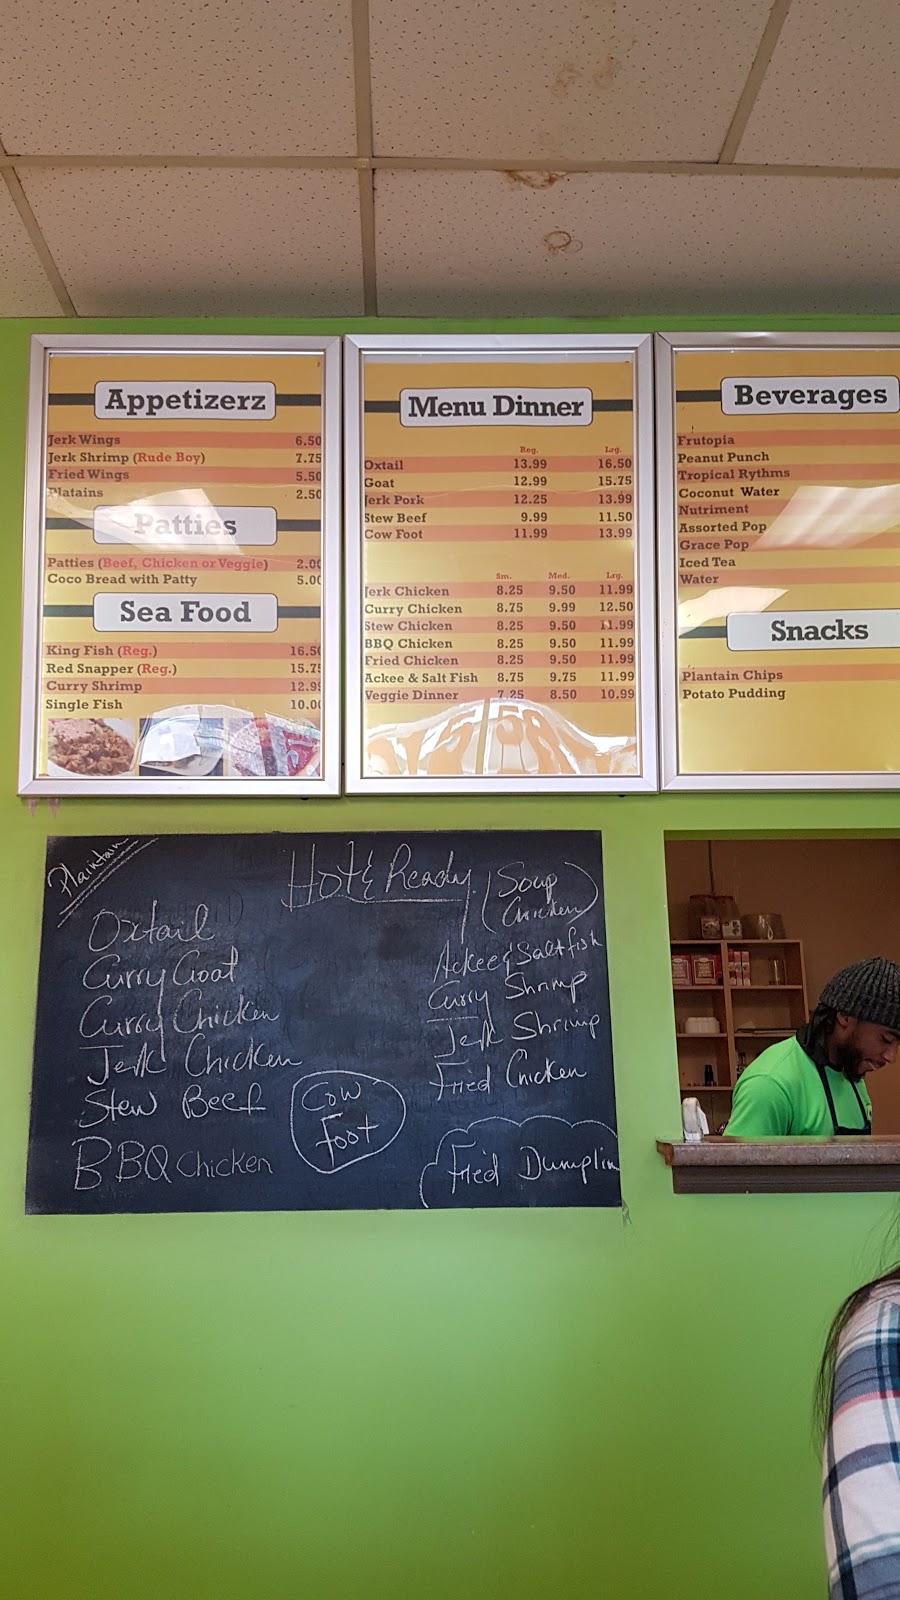 Appetizerz
Jerk Wings 6.50
Jerk Shrimp (Rude Boy) 7.75
Fried Wings 5.50
Platains 2.50
Patties
Patties (Beef, Chicken or Veggie) 2.00
Coco Bread with Patty 5.00
Sea Food
King Fish (Reg.) 16.50
Red Snapper (Reg.) 15.75
Curry Shrimp 12.99
Single Fish 10.00
Menu Dinner
Reg. Lrg.
Oxtail 13.99 16.50
Goat 12.99 15.75
Jerk Pork 12.25 13.99
Stew Beef 9.99 11.50
Cow Foot 11.99 13.99
Sm. Med. Lrg.
Jerk Chicken 8.25 9.50 11.99
Curry Chicken 8.75 9.99 12.50
Stew Chicken 8.25 9.50 11.99
BBQ Chicken 8.25 9.50 11.99
Fried Chicken 8.25 9.50 11.99
Ackee & Salt Fish 8.75 9.75 11.99
Veggie Dinner 7.25 8.50 10.99
Beverages
Frutopia
Peanut Punch
Tropical Rythms
Coconut Water
Nutriment
Assorted Pop
Grace Pop
Iced Tea
Water
Snacks
Plantain Chips
Potato Pudding
Plaintain
Hot & Ready
Oxtail
Curry Goat
Curry Chicken
Jerk Chicken
Stew Beef
BBQ Chicken
Cow
Foot
Soup
Chicken
Ackee & Saltfish
Curry Shrimp
Jerk Shrimp
Fried Chicken
Fried Dumplin